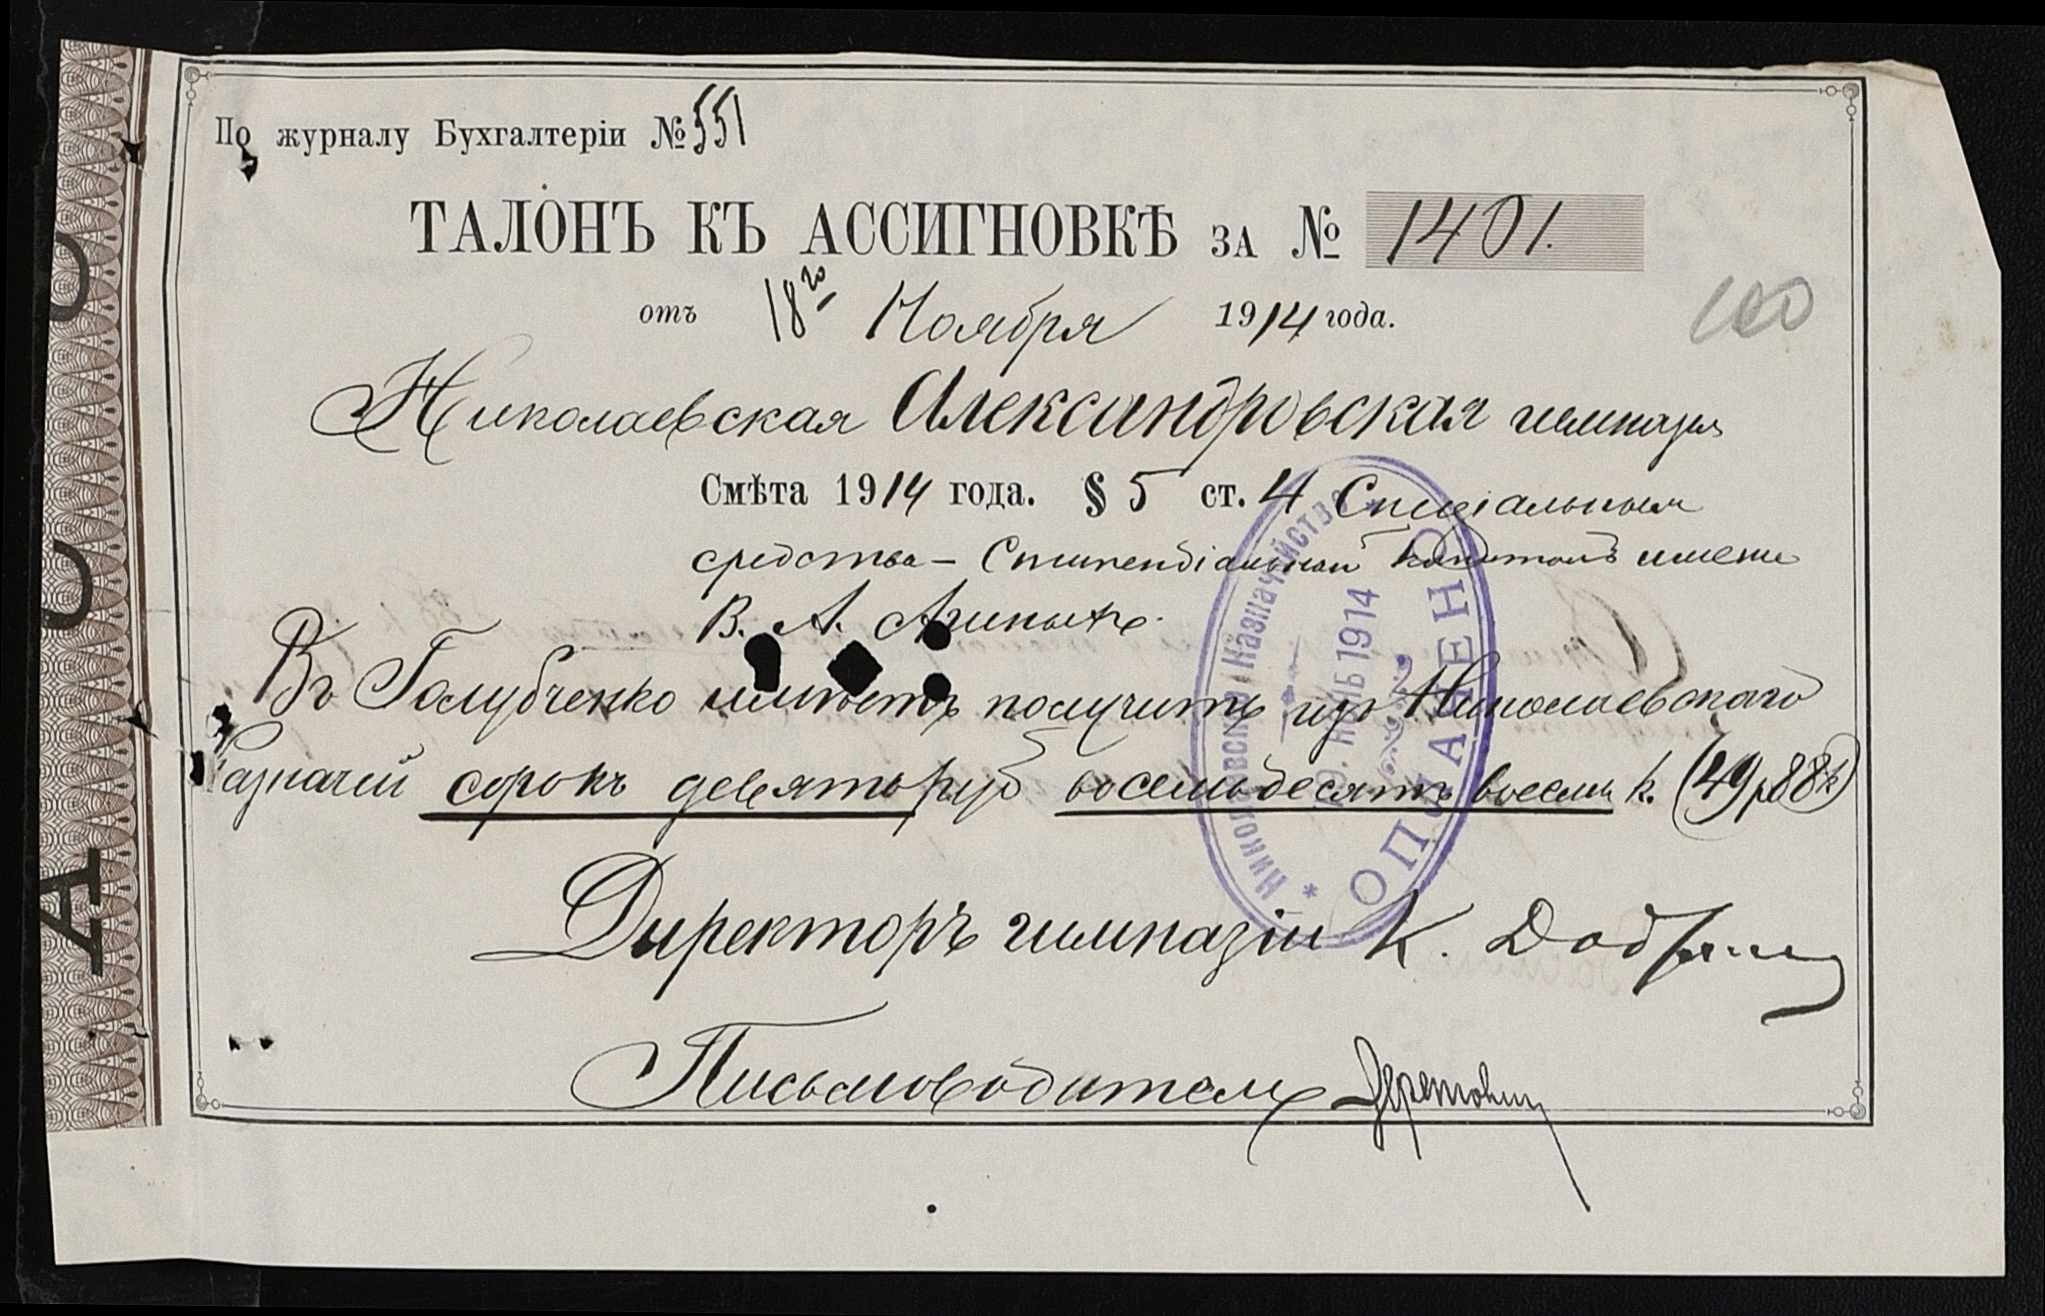 По журналу Бухгалтеріи № 551
ТАЛОНЪ КЪ АССИГНОВКѢ ЗА № 1401.
отъ 18го Ноября 1914 года.
100
Николаевская Александровская гимназія
Смѣта 1914 года. § 5 ст. 4 Спеціальныя
средства – Стипендіальный капиталъ имени
В. А.
Голубченко имѣетъ получить изъ Николаевскаго
Казначей сорокъ девять руб восемьдесятъ восемь к. (49 р 88 к)
Директоръ гимназіи К.
Письмоводитель
Николаевское Казначейство
НОЯБ 1914
ОПЛАЧЕНО